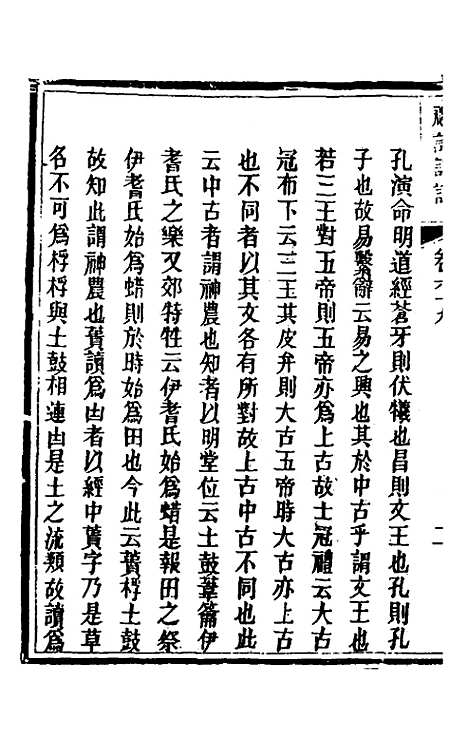 孔演命明道經蒼牙則伏犧也昌則文王也孔則孔
子也故易繫辭云易之興也其於中古乎謂文王也
若三王對五帝則五帝亦爲上古故士冠禮云大古
冠布下云三王共皮弁則大古五帝時大古亦上古
也不同者以其文各有所對故上古中古不同也此
云中古者謂神農也知者以明堂位云土鼓葦籥伊
耆氏之樂又郊特牲云伊耆氏始爲蜡是報田之祭
伊耆氏始爲蜡則於時始爲田也今此云蕢桴土鼓
故知此謂神農也蕢讀爲凷者以經中蕢字乃是草
名不可爲桴桴與土鼓相連凷是土之流類故讀爲